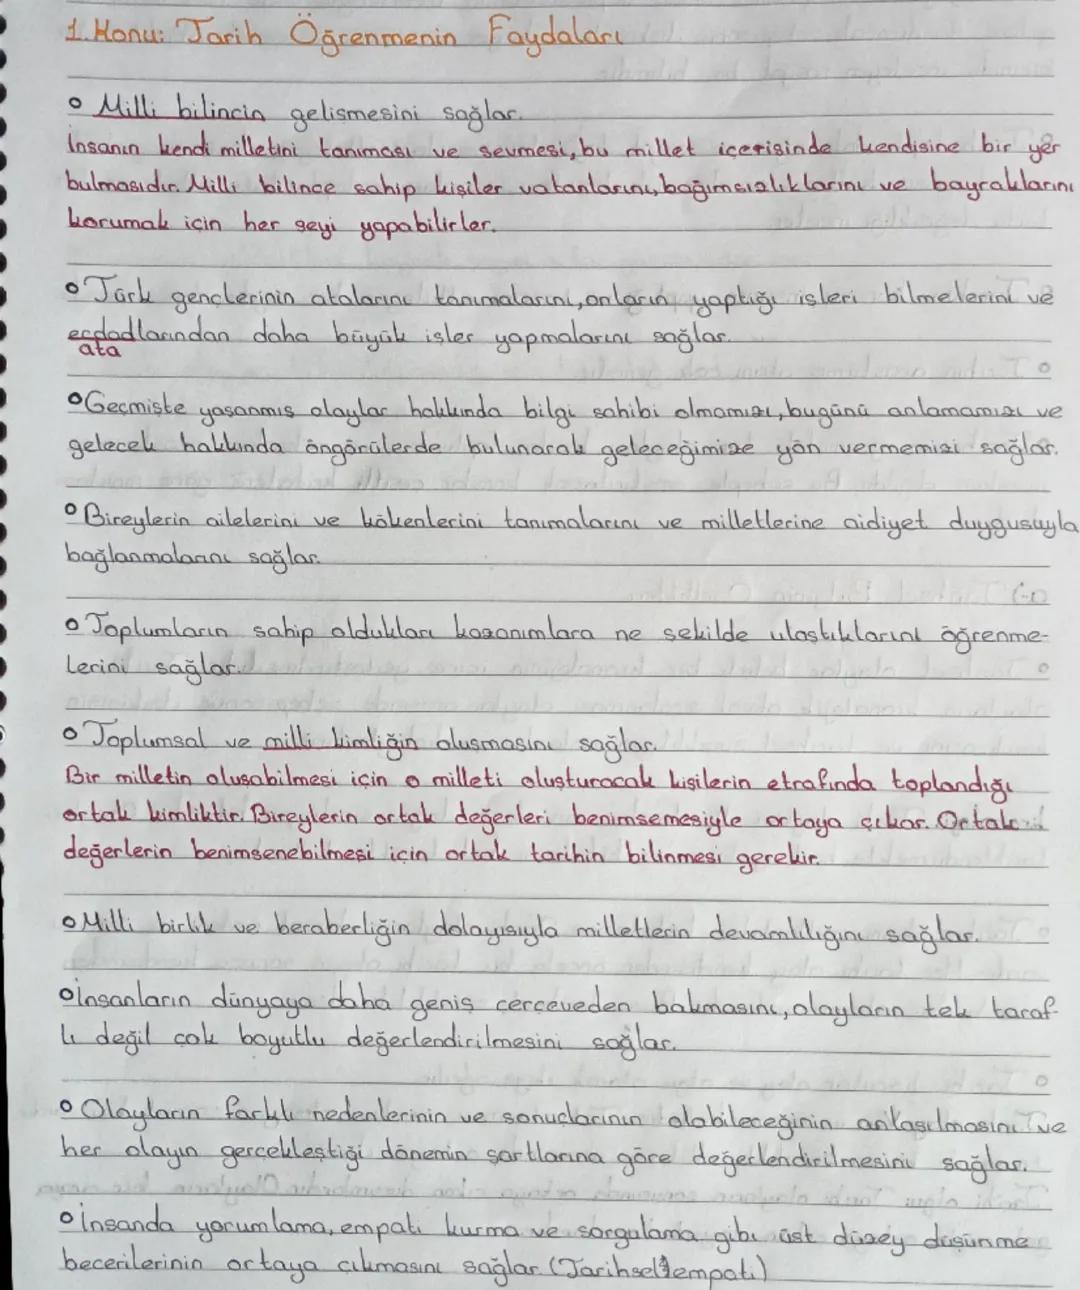 1. Konu: Tarih Öğrenmenin Faydaları
o Milli bilincin gelişmesini sağlar.
İnsanın kendi milletini tanıması ve sevmesi, bu millet içerisinde kendisine bir yer
bulmasıdır. Milli bilince sahip kişiler vatanlarını, bağımsızlıklarını ve bayraklarını
korumak için her şeyi yapabilirler.
o Türk gençlerinin atalarını tanımalarını, onların yaptığı işleri bilmelerini ve
ecdadlarından daha büyük işler yapmalarını sağlar.
ata
o Geçmişte yaşanmış olaylar hakkında bilgi sahibi olmamızı, bugünü anlamamızı ve
gelecek hakkında öngörülerde bulunarak geleceğimize yön vermemizi sağlar.
o Bireylerin ailelerini ve kökenlerini tanımalarını ve milletlerine aidiyet duygusuyla
bağlanmalarını sağlar.
o Toplumların sahip oldukları kazanımlara ne şekilde ulaştıklarını öğrenme-
lerini sağlar.
o Toplumsal ve milli kimliğin oluşmasını sağlar.
Bir milletin oluşabilmesi için o milleti oluşturacak kişilerin etrafında toplandığı
ortak kimliktir. Bireylerin ortak değerleri benimsemesiyle ortaya çıkar. Ortak
değerlerin benimsenebilmesi için ortak tarihin bilinmesi gerekir.
o Milli birlik ve beraberliğin dolayısıyla milletlerin devamlılığını sağlar.
o İnsanların dünyaya daha geniş çerçeveden bakmasını, olayların tek taraf-
lı değil çok boyutlu değerlendirilmesini sağlar.
o Olayların farklı nedenlerinin ve sonuçlarının olabileceğinin anlaşılmasını ve
her olayın gerçekleştiği dönemin şartlarına göre değerlendirilmesini sağlar.
o İnsanda yorumlama, empati kurma ve sorgulama gibi üst düzey düşünme
becerilerinin ortaya çıkmasını sağlar. (Tarihsel empati)